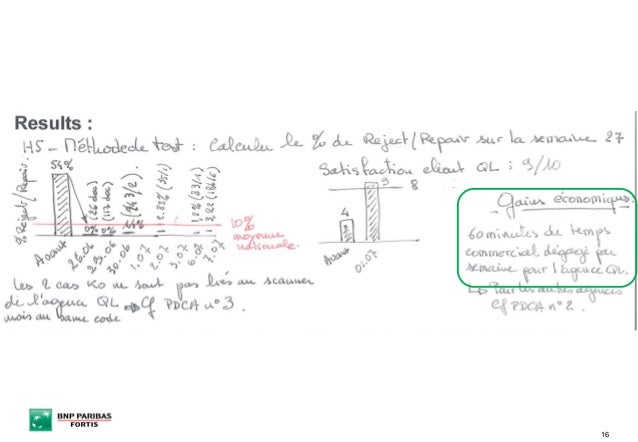 Results :
H5 - Méthode de test : Calculer le % de Reject / Repair sur la semaine 27
% Reject / Repair.
54%
0% (26 doc)
0% (117 doc)
(243/2).
2.85% (35/1)
Avant
26.06
29.06
30.06
1.07
2.07
3.07
6.07
7.07
10%
moyenne
nationale.
Satisfaction client QL : 9/10
4
9
8
Avant
01.07
Gains économiques.
60 minutes de temps
commercial dégagé par
semaine pour l'agence QL.
Pour les autres agences
Cf PDCA n° 2.
Les 2 cas KO ne sont pas liés au scanner
de l'agence QL Cf PDCA n° 3.
mais au same code
BNP PARIBAS
FORTIS
16